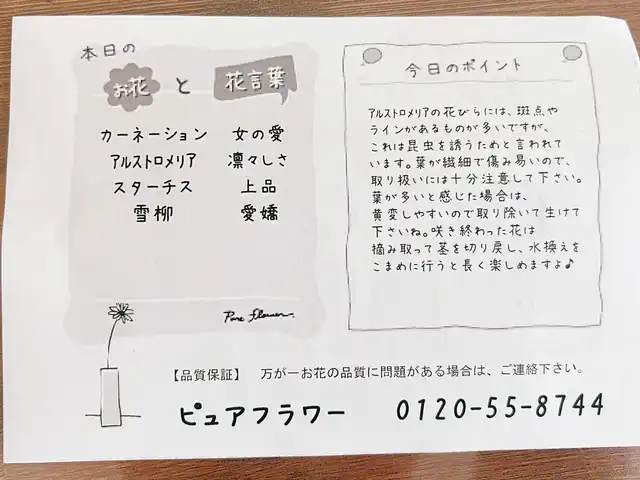 本日の
お花 と 花言葉
カーネーション 女の愛
アルストロメリア 凛々しさ
スターチス 上品
雪柳 愛嬌
Pure flower.
今日のポイント
アルストロメリアの花びらには、斑点や
ラインがあるものが多いですが、
これは昆虫を誘うためと言われて
います。葉が繊細で傷み易いので、
取り扱いには十分注意して下さい。
葉が多いと感じた場合は、
黄変しやすいので取り除いて生けて
下さいね。咲き終わった花は
摘み取って茎を切り戻し、水換えを
こまめに行うと長く楽しめますよ♪
【品質保証】 万が一お花の品質に問題がある場合は、ご連絡下さい。
ピュアフラワー 0120-55-8744